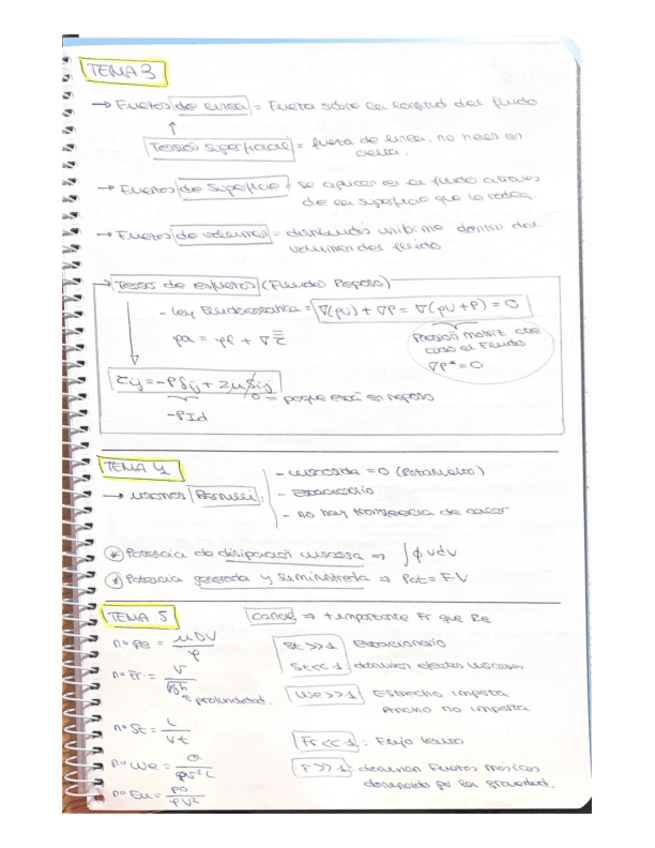 TEMA 3
→ Fuerzas de linea = Fuerza sobre la longitud del fluido
↑
Tensión superficial = fuerza de linea, no haces en
→ Fuerzas de Superficie = se aplican en el fluido a través
de la superficie que lo rodea.
→ Fuerzas de volumen = distribuidos uniforme dentro del
volumen del fluido
→ Tensor de esfuerzos (Fluido Reposo)
- Ley Fluidoestatica = ∇(ρU) + ∇P = ∇(ρU + P) = 0
ρa = ρf + ∇ τ̿
Presión motriz que
todo el Fluido
∇P* = 0
τij = -Pδij + 2μSij
0 = porque está en reposo
-PId
TEMA 4
→ usamos Bernulli:
- viscosida = 0 (Potencial)
- Estacionario
- no hay transferencia de calor
* Potencia de disipación viscosa ⇒ ∫ϕvdv
* Potencia generada y suministrada ⇒ Pot = F·V
TEMA 5
canal ⇒ + importante Fr que Re
nº Re = μDV / ρ
nº Fr = V / √gh
profundidad.
nº St = L / vt
nº We = σ / ρv²L
nº Eu = P0 / ρV²
St >> 1 Estacionario
St << 1 dominan efectos viscosos
We >> 1 Estrecho importa
Ancho no importa
Fr << 1 : Flujo lento
F >> 1 : dominan fuerzas másicas
dominado por la gravedad.